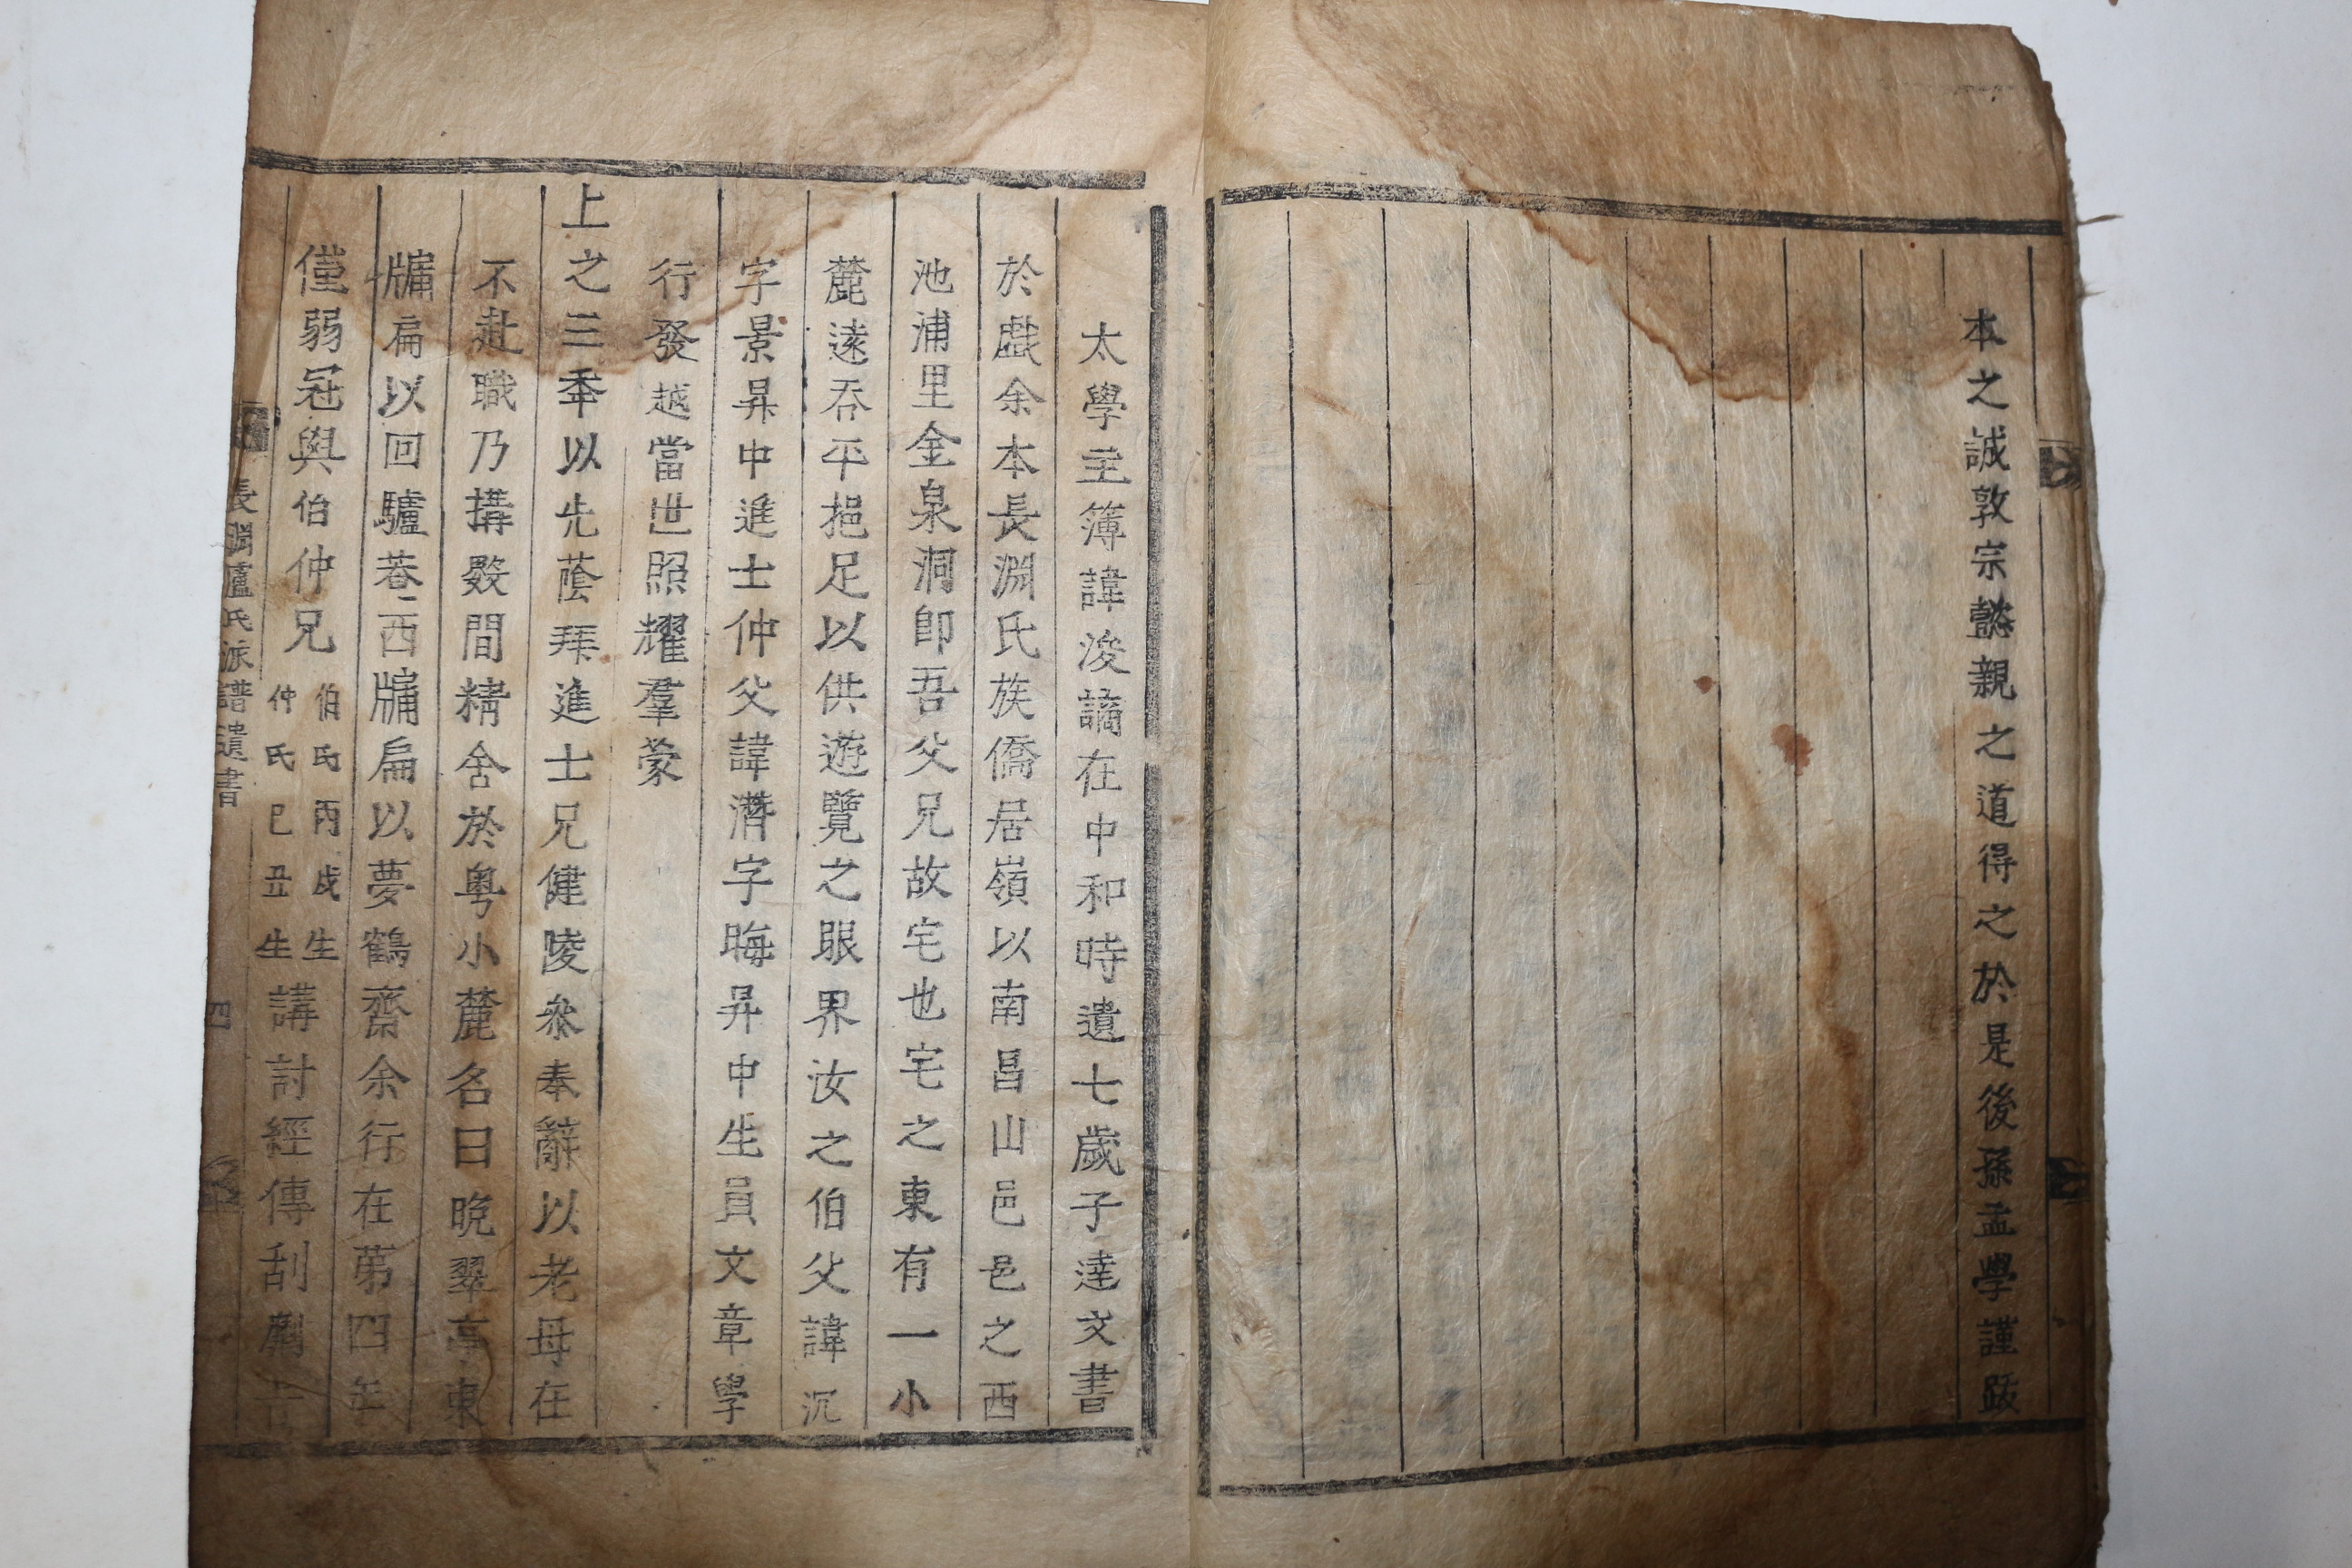 本之誠敦宗懿親之道得之於是後孫孟學謹跋
太學主簿諱浚謫在中和時遺七歲子達文書
於戱余本長淵氏族僑居嶺以南昌山邑邑之西
池浦里金泉洞卽吾父兄故宅也宅之東有一小
麓遠吞平挹足以供遊覽之眼界汝之伯父諱沉
字景昇中進士仲父諱濳字晦昇中生員文章學
行發越當世照耀羣蒙
上之三秊以先蔭拜進士兄健陵叅奉辭以老母在
不赴職乃搆數間精舍於粤小麓名曰晩翠亭東
牖扁以回驢菴西牖扁以夢鶴齋余行在第四年
僅弱冠與伯仲兄伯氏丙戌生仲氏己丑生講討經傳刮劘古
長淵盧氏派譜遺書 四